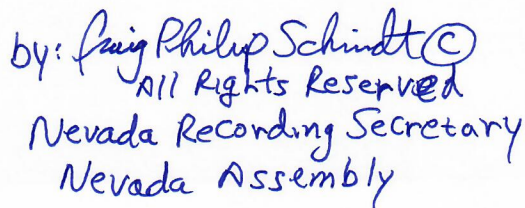 by: Craig Philip Schindt ©
All Rights Reserved
Nevada Recording Secretary
Nevada Assembly